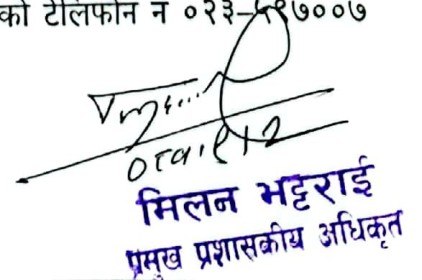 को टेलिफोन नं ०२३-५९७००७
मिलन भट्टराई
प्रमुख प्रशासकीय अधिकृत